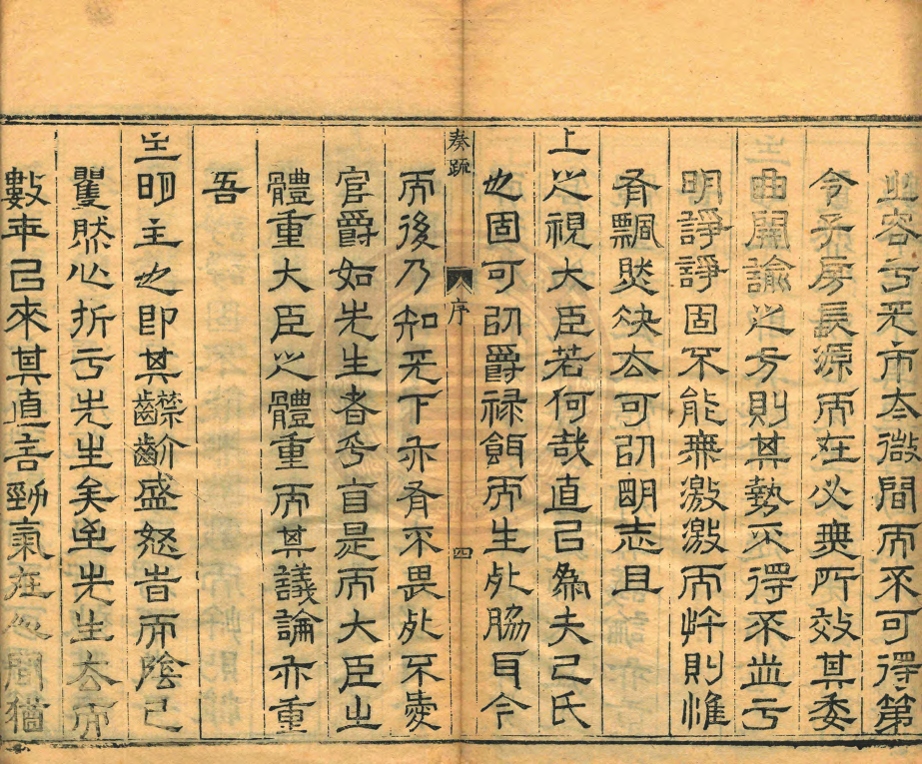 並容于天市太微間而不可得第
令子房長源而在必無所效其委
主曲開諭之方則其勢不得不出于
明諍諍固不能無激激而悻則惟
有飄然決去可以明志且
奏疏 序 四
上之視大臣若何哉直己為夫己氏
也固可以爵祿餌而生死脇耳今
而後乃知天下亦有不畏死不愛
官爵如先生者乎自是而大臣之
體重大臣之體重而其議論亦重
吾
主明主也即其齽齘盛怒時而陰已
瞿然心折于先生矣至先生去而
數年已來其直言勁氣在間猶